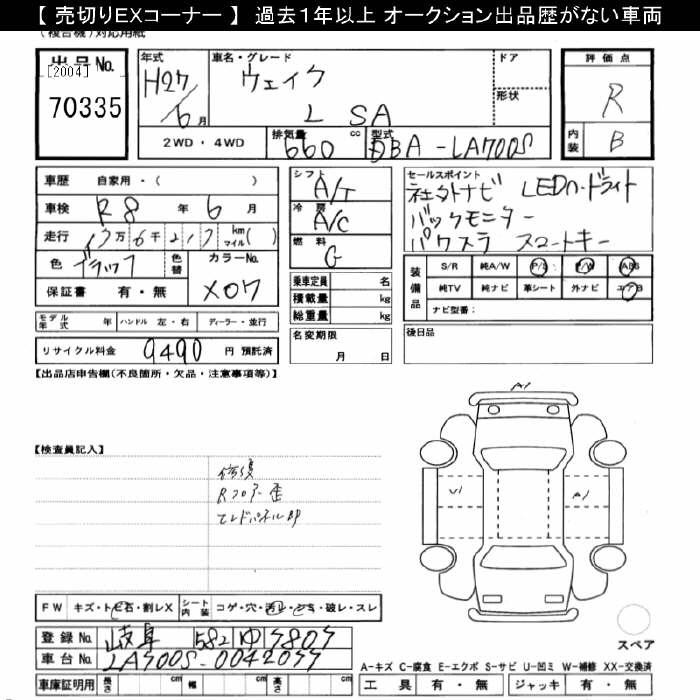 【 売切りEXコーナー 】 過去1年以上 オークション出品歴がない車両
(複合機)対応用紙
出品No. 年式 車名・グレード ドア 評価点
[2004]
70335
H27/6月
ウェイク
L SA
形状
R
内装 B
2WD・4WD 排気量 660 cc 型式 DBA-LA700S
車歴 自家用・( )
シフト A/T
セールスポイント
社外ナビ LEDヘッドライト
バックモニター
パワスラ スマートキー
車検 R8 年 6 月
冷房 A/C
走行 13万6千217 km マイル( )
燃料 G
色 ブラック 色替 カラーNo. X07
保証書 有・無
乗車定員 名
積載量 kg
総重量 kg
装備品 S/R 純A/W P/S P/W ABS
純TV 純ナビ 革シート 外ナビ エアB
ナビ型番:
モデル年式 年 ハンドル 左・右 ディーラー・並行
名変期限 月 日
後日品
リサイクル料金 9490 円 預託済
【出品店申告欄(不良箇所・欠品・注意事項等)】
A1
【検査員記入】
修復
Rフロアー歪
エンドパネル
U1
A1
FW キズ・トビ石・割レX シート内装 コゲ・穴・汚レ・シミ・破レ・スレ
スペア
登録No. 岐阜 582 ゆ 7807
車台No. LA700S-0042077
A-キズ C-腐食 E-エクボ S-サビ U-凹ミ W-補修 XX-交換済
車庫証明用 長さ cm 幅 cm 高さ cm
工具 有・無 ジャッキ 有・無